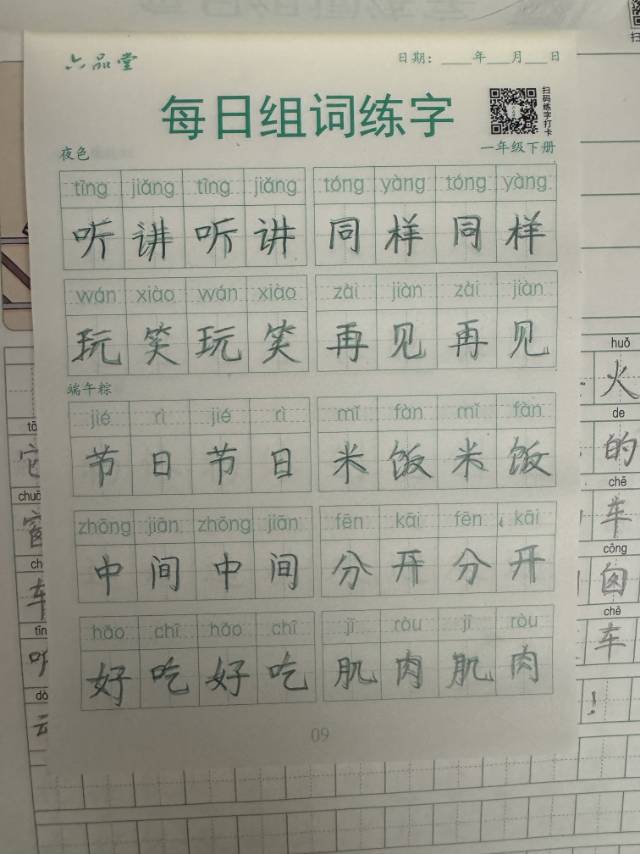 六品堂
日期：____年___月___日
每日组词练字
扫码练字打卡
夜色
一年级下册
tīng jiǎng tīng jiǎng tóng yàng tóng yàng
听讲听讲 同样同样
wán xiào wán xiào zài jiàn zài jiàn
玩笑玩笑 再见再见
端午粽
jié rì jié rì mǐ fàn mǐ fàn
节日节日 米饭米饭
zhōng jiān zhōng jiān fēn kāi fēn kāi
中间中间 分开分开
hǎo chī hǎo chī jī ròu jī ròu
好吃好吃 肌肉肌肉
09
huǒ
火
de
的
chē
车
cōng
囱
chē
车
！
它
chuāng
窗
车
tīng
听